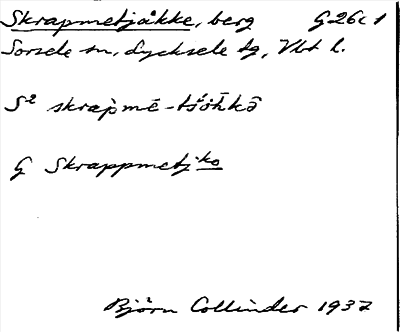 Skrapmetjåkke, berg G 26c 1
Sorsele sn, Lycksele lg, Vbt l.
S² skrap̀mē-tśåh̄kō
G Skrappmetj:ko
Björn Collinder 1937